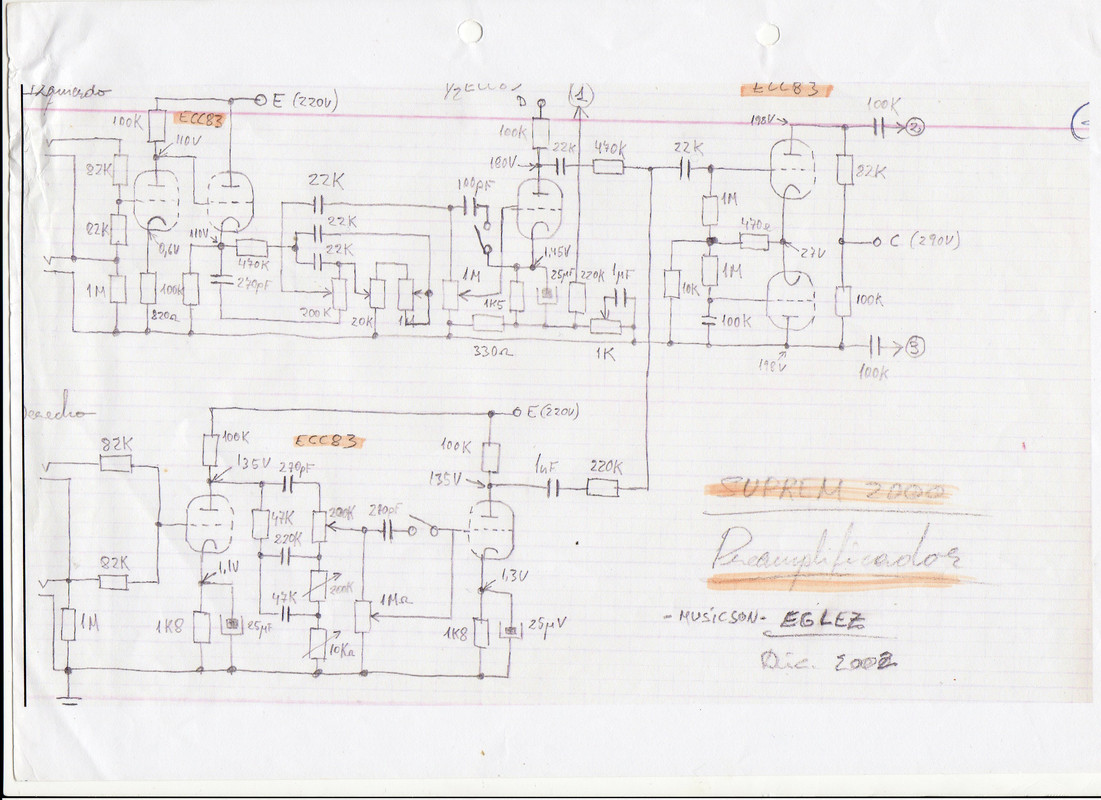 Izquierdo
E (220V)
100K
ECC83
110V
82K
82K
0,6V
110V
1M
820Ω
100K
470K
270pF
22K
22K
22K
200K
20K
1M
100pF
D
100K
180V
22K
470K
1,45V
1K5
25µF
220K
1µF
330Ω
1K
1
ECC83
198V
100K
2
22K
1M
82K
470Ω
27V
C (290V)
10K
1M
100K
100K
198V
100K
3
E (220V)
100K
82K
135V
ECC83
270pF
100K
135V
1µF
220K
47K
200K
270pF
220K
82K
1,1V
200K
1MΩ
1,3V
47K
1M
1K8
25µF
10KΩ
1K8
25µV
SUPREM 2000
Preamplificador
- MUSICSON - EGLEZ
Dic. 2002